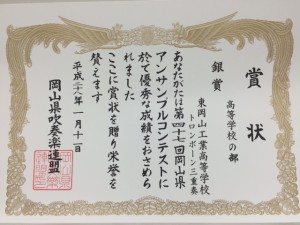 賞状
銀賞
高等学校の部
東岡山工業高等学校
トロンボーン三重奏
あなたがたは第四十七回岡山県
アンサンブルコンテストに
於て優秀な成績をおさめら
れました
ここに賞状を贈り栄誉を
賛えます
平成二十八年一月十一日
岡山県吹奏楽連盟